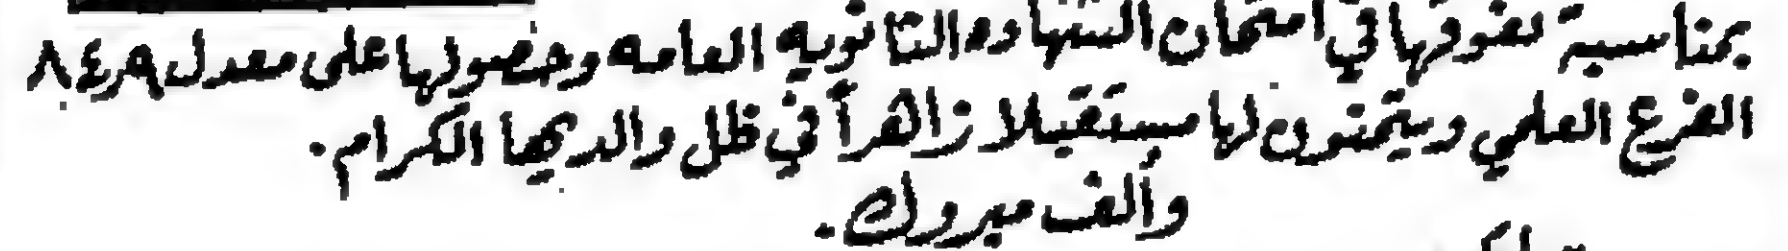 بمناسبة تفوقها في امتحان الشهاده الثانويه العامه وحصولها على معدل ٨٤٫٩
الفرع العلمي ويتمنون لها مستقبلا زاهراً في ظل والديها الكرام.
وألف مبروك.